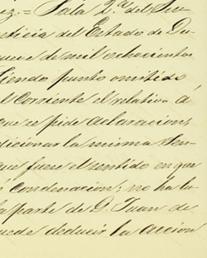 ez.= Sala 2.ª del Su
sticia del Estado de Du
nueve de mil ochocientos
siendo punto omitido
el corriente el relativo á
que se pide aclaraciones
adicionar la misma Sen
que fuere el sentido en que
ó condenacion; no ha lu
la parte de D. Juan de
uede deducir la accion